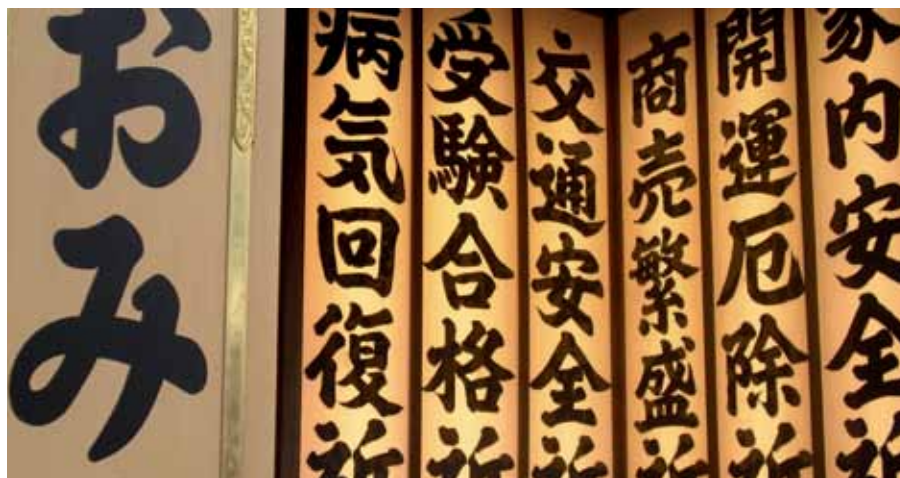 家内安全祈
開運厄除祈
商売繁盛祈
交通安全祈
受験合格祈
病気回復祈
おみ